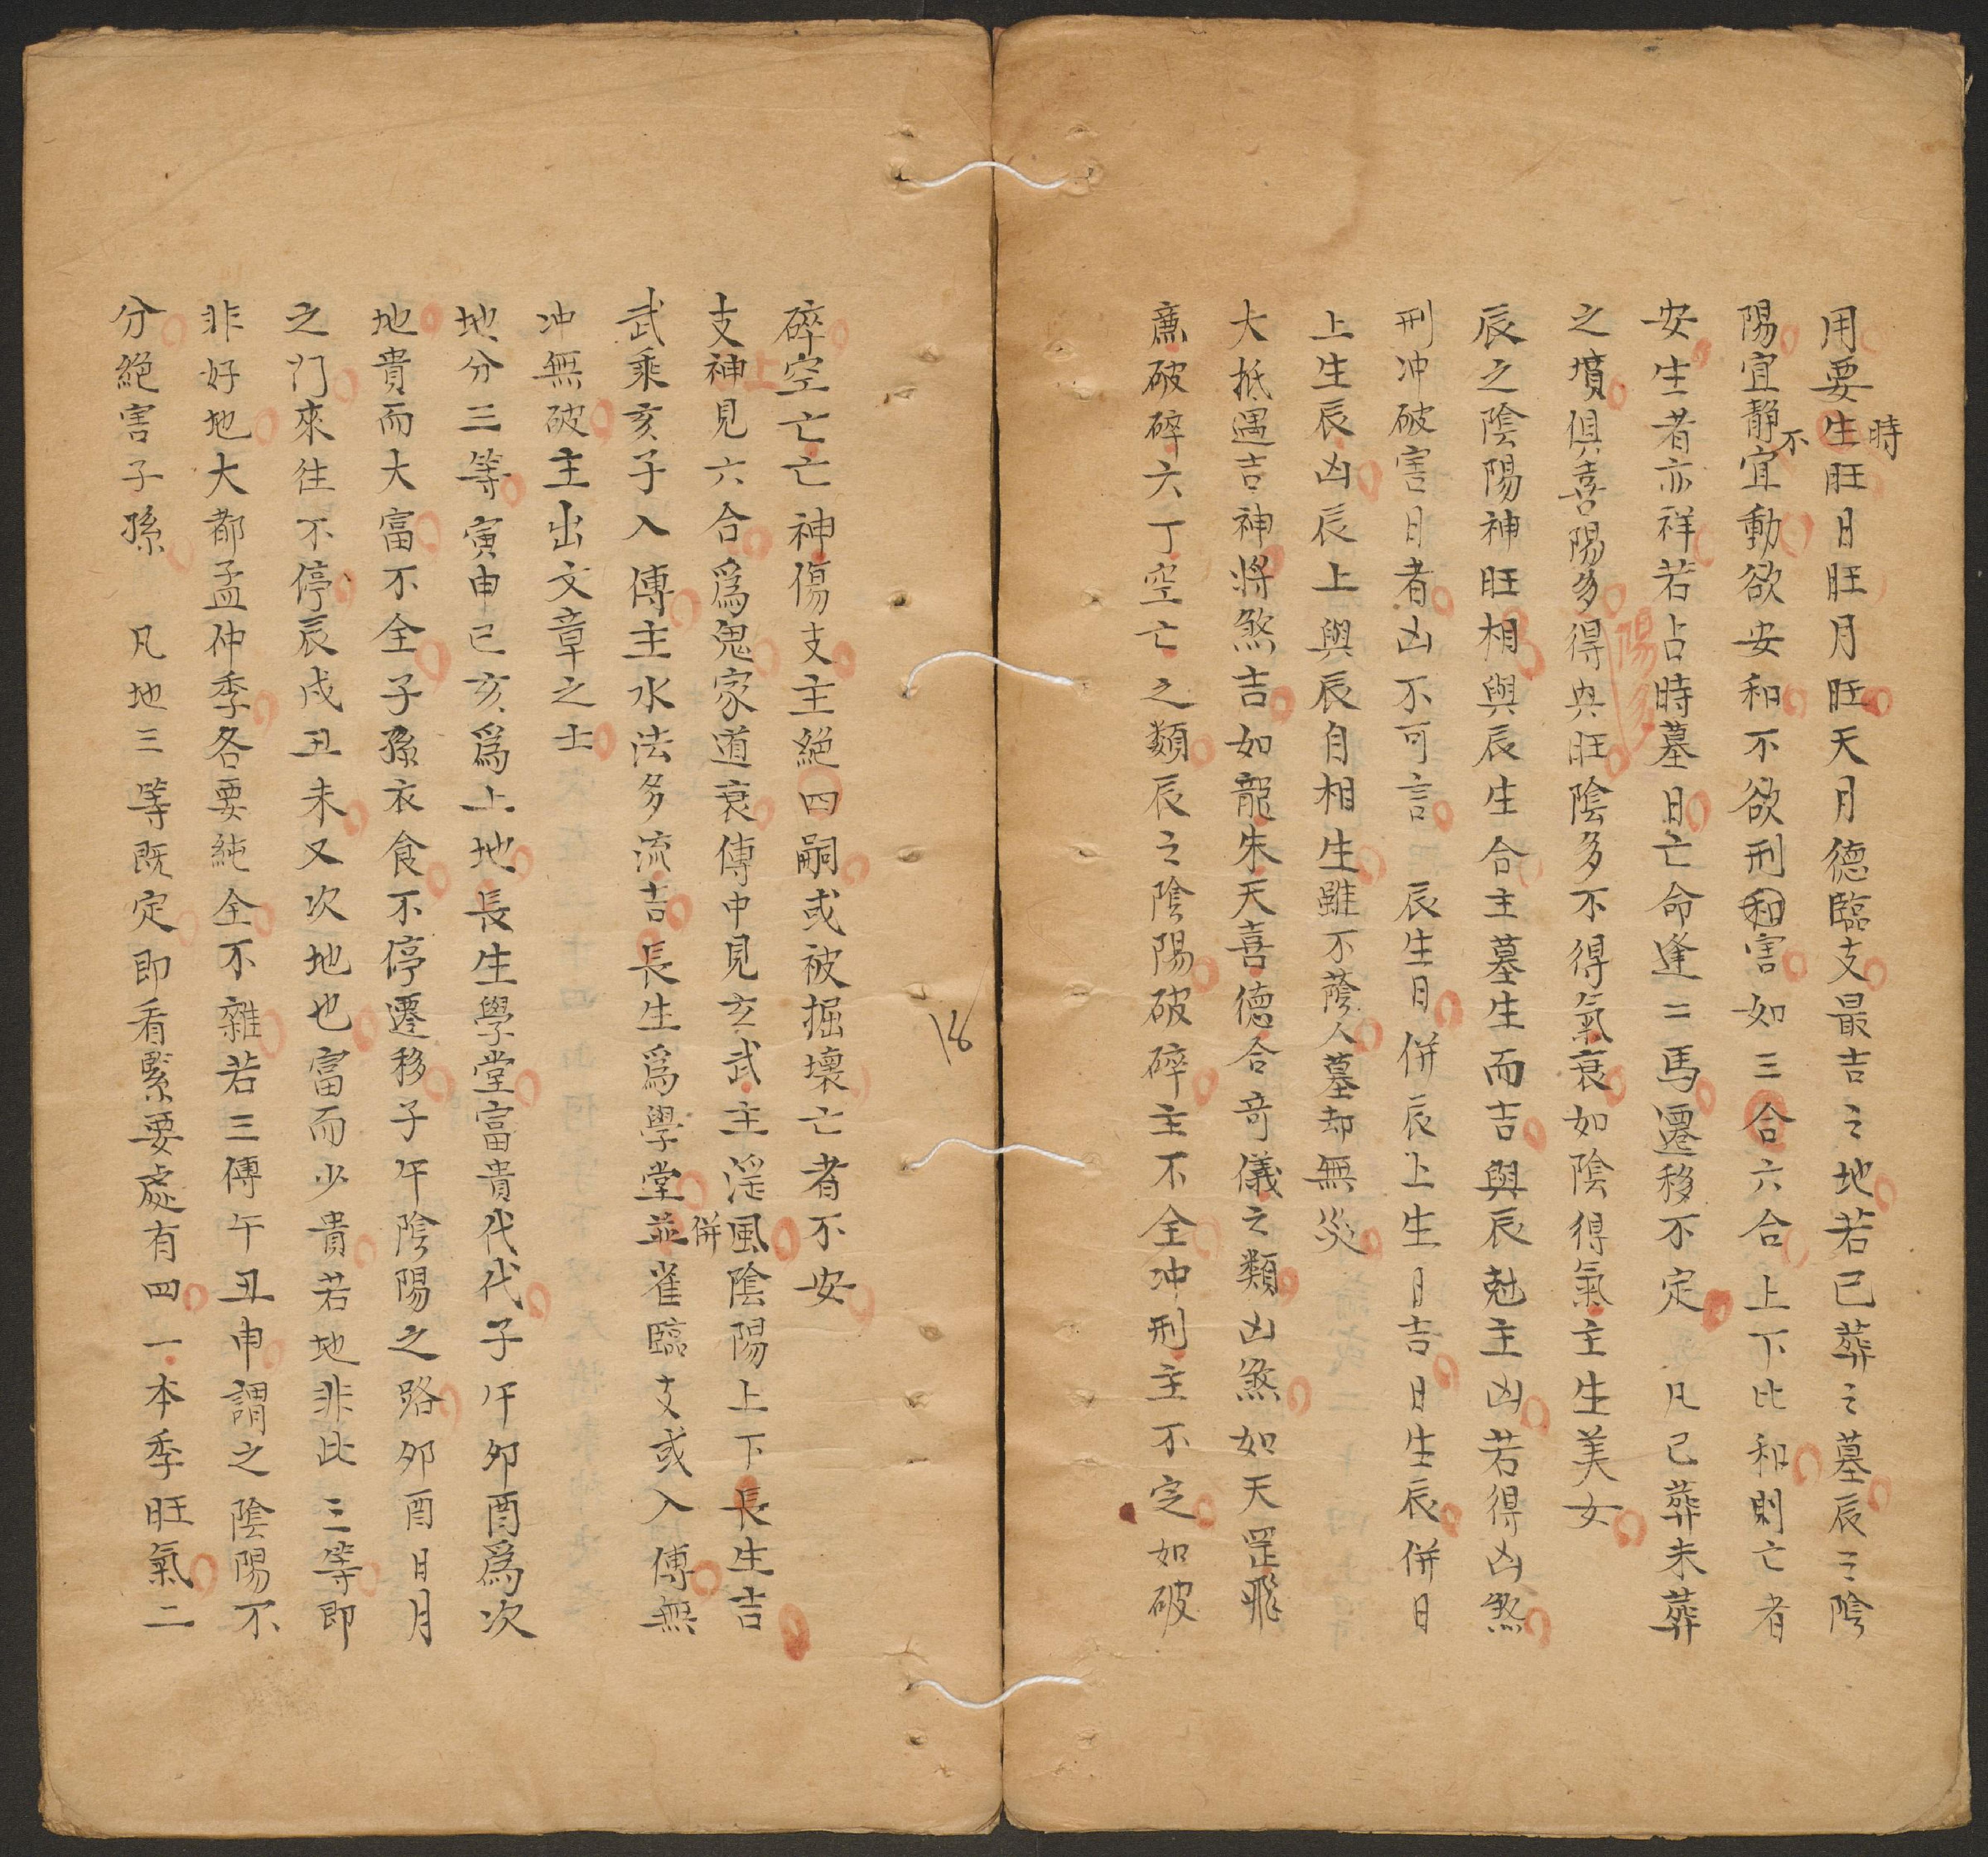 用要生時旺日旺月旺天月德臨支最吉之地若已葬之墓辰之陰
陽宜靜不宜動欲安和不欲刑和害如三合六合上下比和則亡者
安生者亦祥若占時墓日亡命逢二馬遷移不定 凡已葬未葬
之墳俱喜陽多陽多得與旺陰多不得氣衰如陰得氣主生美女
辰之陰陽神旺相與辰生合主墓生而吉與辰尅主凶若得凶煞
刑冲破害日者凶不可言 辰生日併辰上生日吉日生辰併日
上生辰凶辰上與辰自相生雖不蔭人墓却無災
大抵遇吉神將煞吉如龍朱天喜德合竒儀之類凶煞如天罡飛
廉破碎六丁空亡之類辰之陰陽破碎主不全冲刑主不定如破
碎空亡亡神傷支主絕四嗣或被掘壞亡者不安
支上神見六合爲鬼家道衰傳中見玄武主淫風陰陽上下長生吉
武乘亥子入傳主水法多流吉長生爲學堂並併雀臨支或入傳無
冲無破主出文章之士
地分三等寅申已亥爲上地長生學堂富貴代代子午卯酉爲次
地貴而大富不全子孫衣食不停遷移子午陰陽之路卯酉日月
之门來往不停辰戌丑未又次地也富而少貴若地非比三等即
非好地大都孟仲季各要純全不雜若三傳午丑申謂之陰陽不
分絕害子孫 凡地三等既定即看緊要處有四一本季旺氣二
16